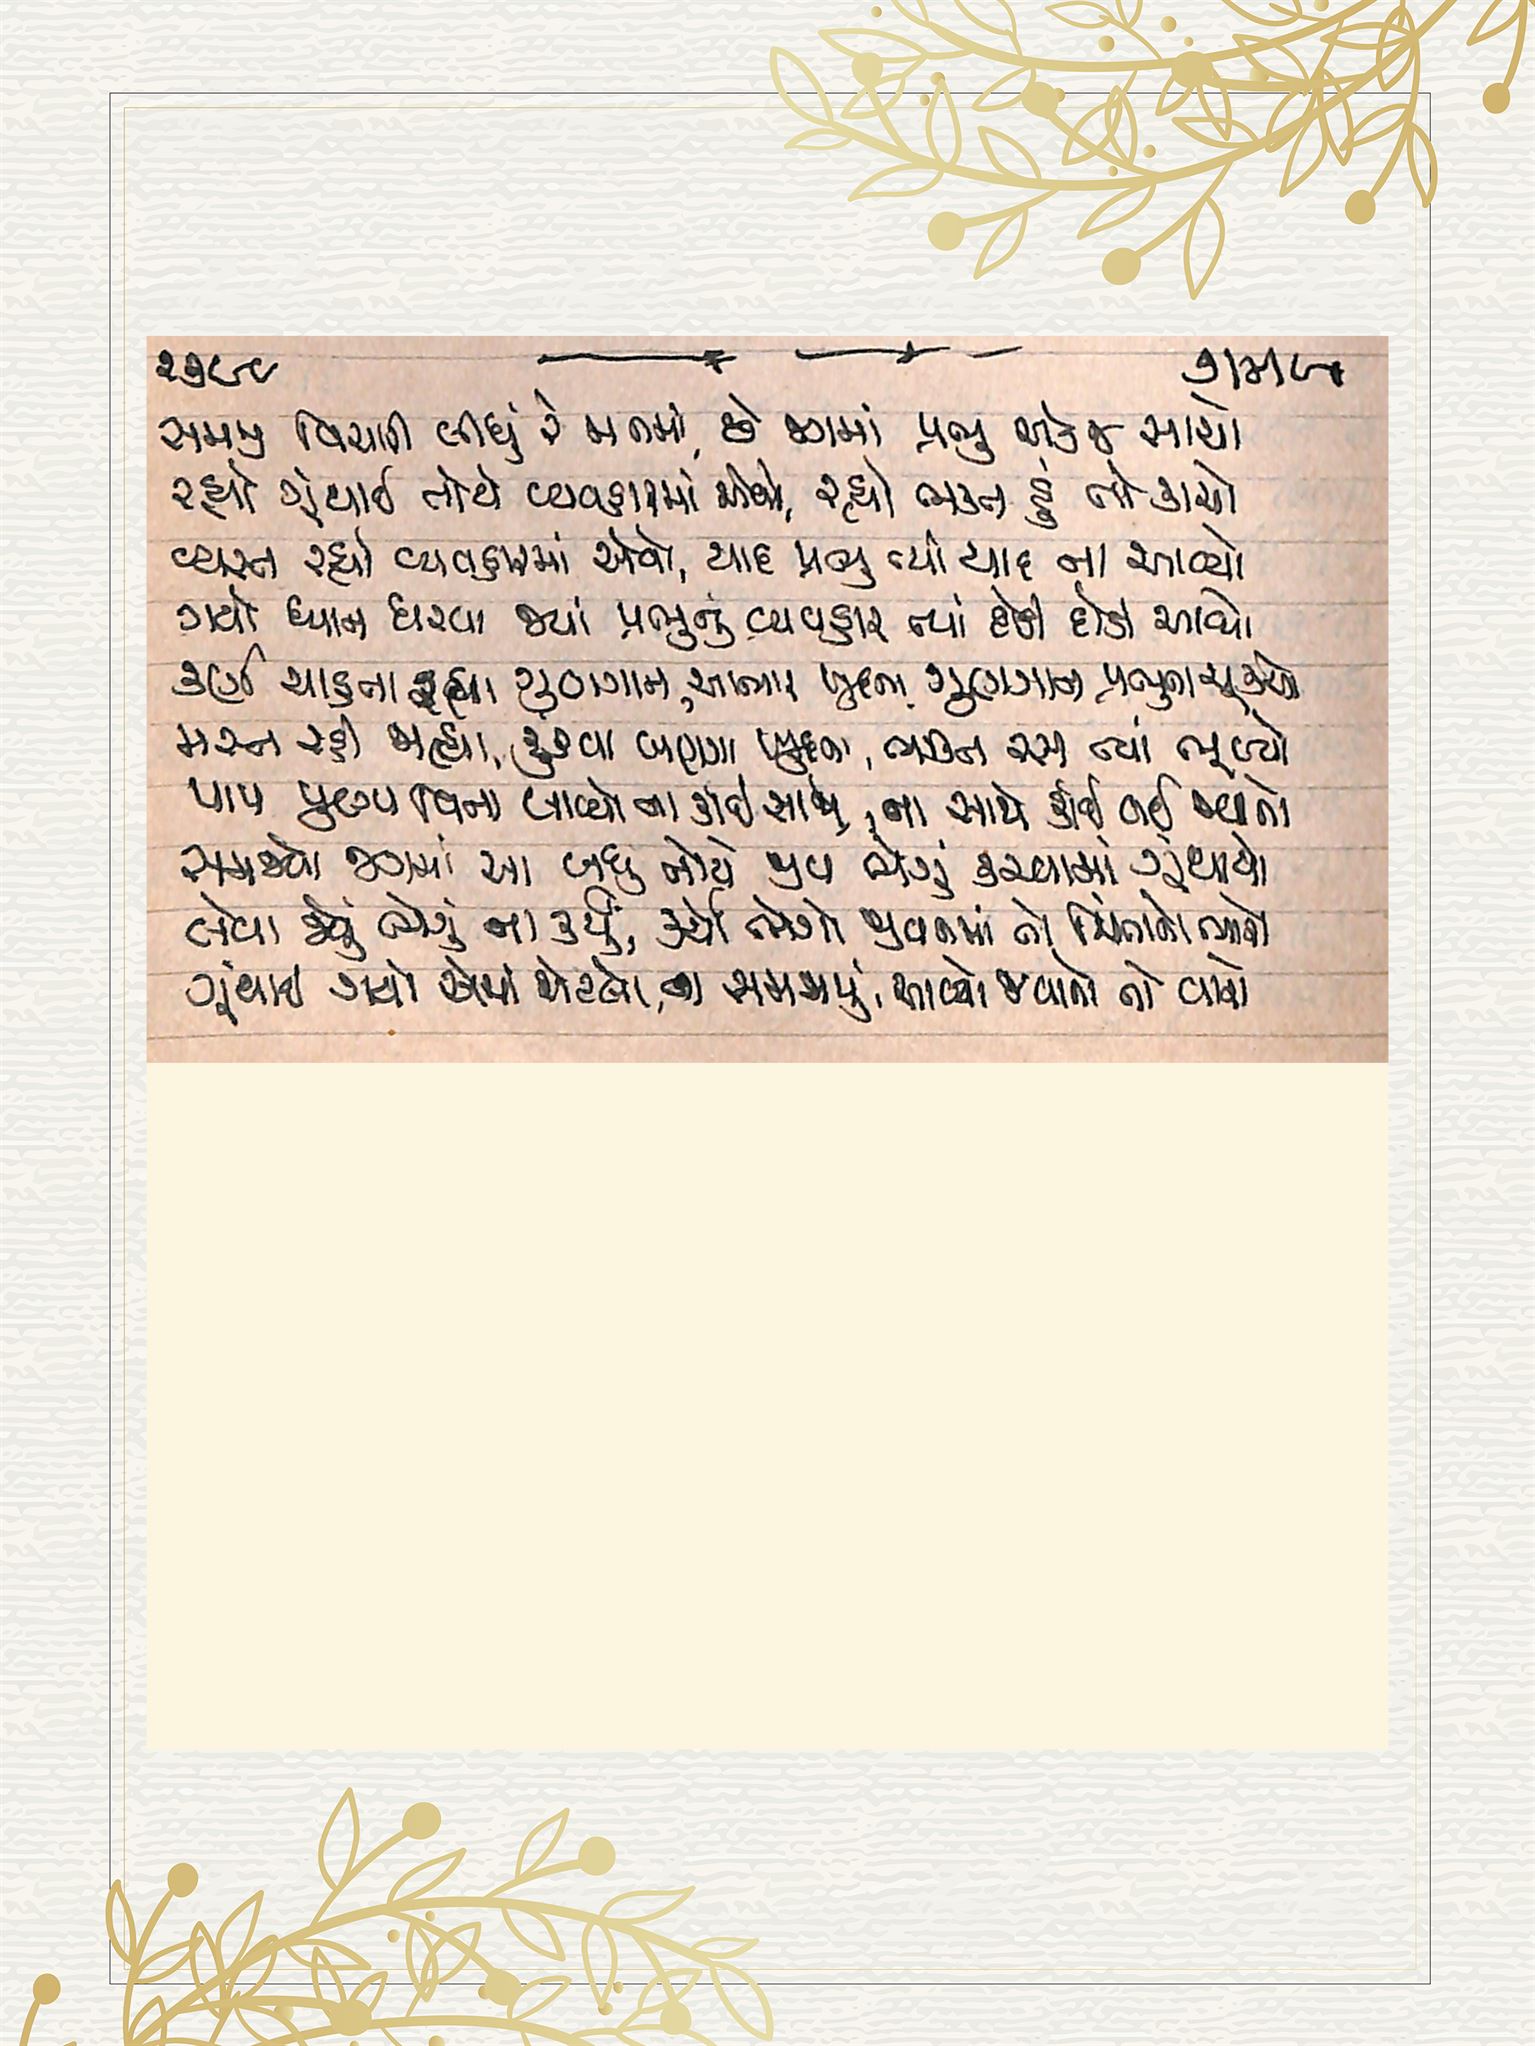 ૨૭૯૯
સમજી વિચારી લીધું રે મનમાં, છે જગમાં પ્રભુ એક જ સાચો
રહ્યો ગૂંથાઈ તોયે વ્યવહારમાં એવો, રહ્યો ભક્ત હું તો કાચો
વ્યસ્ત રહ્યો વ્યવહારમાં એવો, યાદ પ્રભુ ત્યાં યાદ ના આવ્યો
ગયો ધ્યાન ધરવા જ્યાં પ્રભુનું વ્યવહાર ત્યાં દોડી દોડી આવ્યો
કંઈ ચાહના રહ્યા ગુણગાન, ખુદના ગુણગાન પ્રભુના ચૂક્યો
મસ્ત રહી બન્યા, ખુદના, ભક્તિ રસ ત્યાં ભૂલ્યો
પાપ પુણ્ય વિના લાવ્યો ના કોઈ સાથે, ના સાથે કોઈ લઈ જવાનો
સમજ્યો જગમાં આ બધું તોયે ભેગું કરવામાં ગૂંથાયો
લેવા જેવું ભેગું ના કર્યું, કર્યો ભેગો જીવનમાં તો ચિંતાનો ભારો
ગૂંથાઈ ગયો એમાં એટલો, ના સમજાયું, આવ્યો જવાનો તો વારો